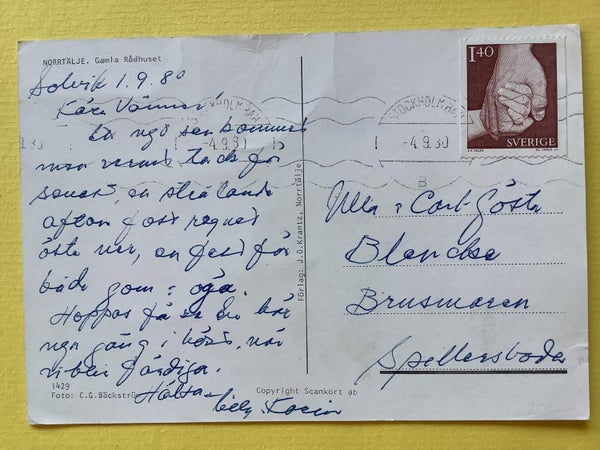 NORRTÄLJE. Gamla Rådhuset
Solvik 1.9.80
Kära Vänner!
sen kommer
men varmt tack för
senast, en strålande
afton fast regnet
öste ner, en fest för
både gom o öga.
Hoppas få se Er här
ngn gång i höst, när
vi blir färdiga.
Hälsn
1429
Foto: C.G.Bäckströ
Copyright Scankort ab
Förlag: J.O.Krantz, Norrtälje
STOCKHOLM BAN
-4.9.80
STOCKHOLM BAN
-4.9.80
B
1.40
SVERIGE
Ulla o Carl-Gösta
Blancke
Brusmaren
Spillersboda